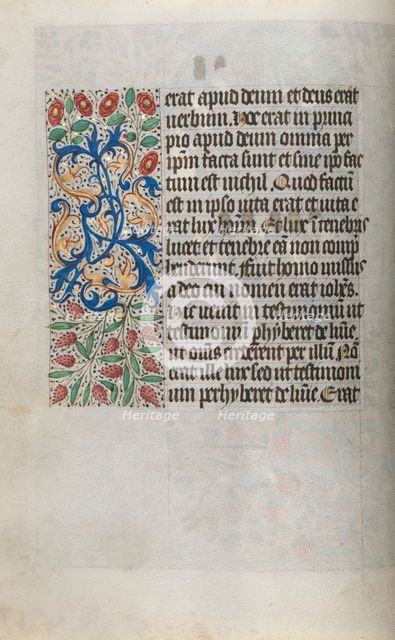 erat apud deum et deus erat
uerbum. Hoc erat in princi
pio apud deum omnia per
ipm̄ facta sunt et sine ipō fac
tum est nichil. Quod factū
est in ipso uita erat et uita e
rat lux hoīm. Et lux ī tenebris
lucet et tenebre eā non comp
henderunt. fuit homo missus
a deo cui nomen erat iohēs.
Hic uenit in testimoniū ut
testimoniū phyberet de lumīe
ut oms̄ crederent per illū Nō
erat ille lux sed ut testimoni
um perhyberet de lumīe. Erat
Heritage Heritage
Heritage Heritage